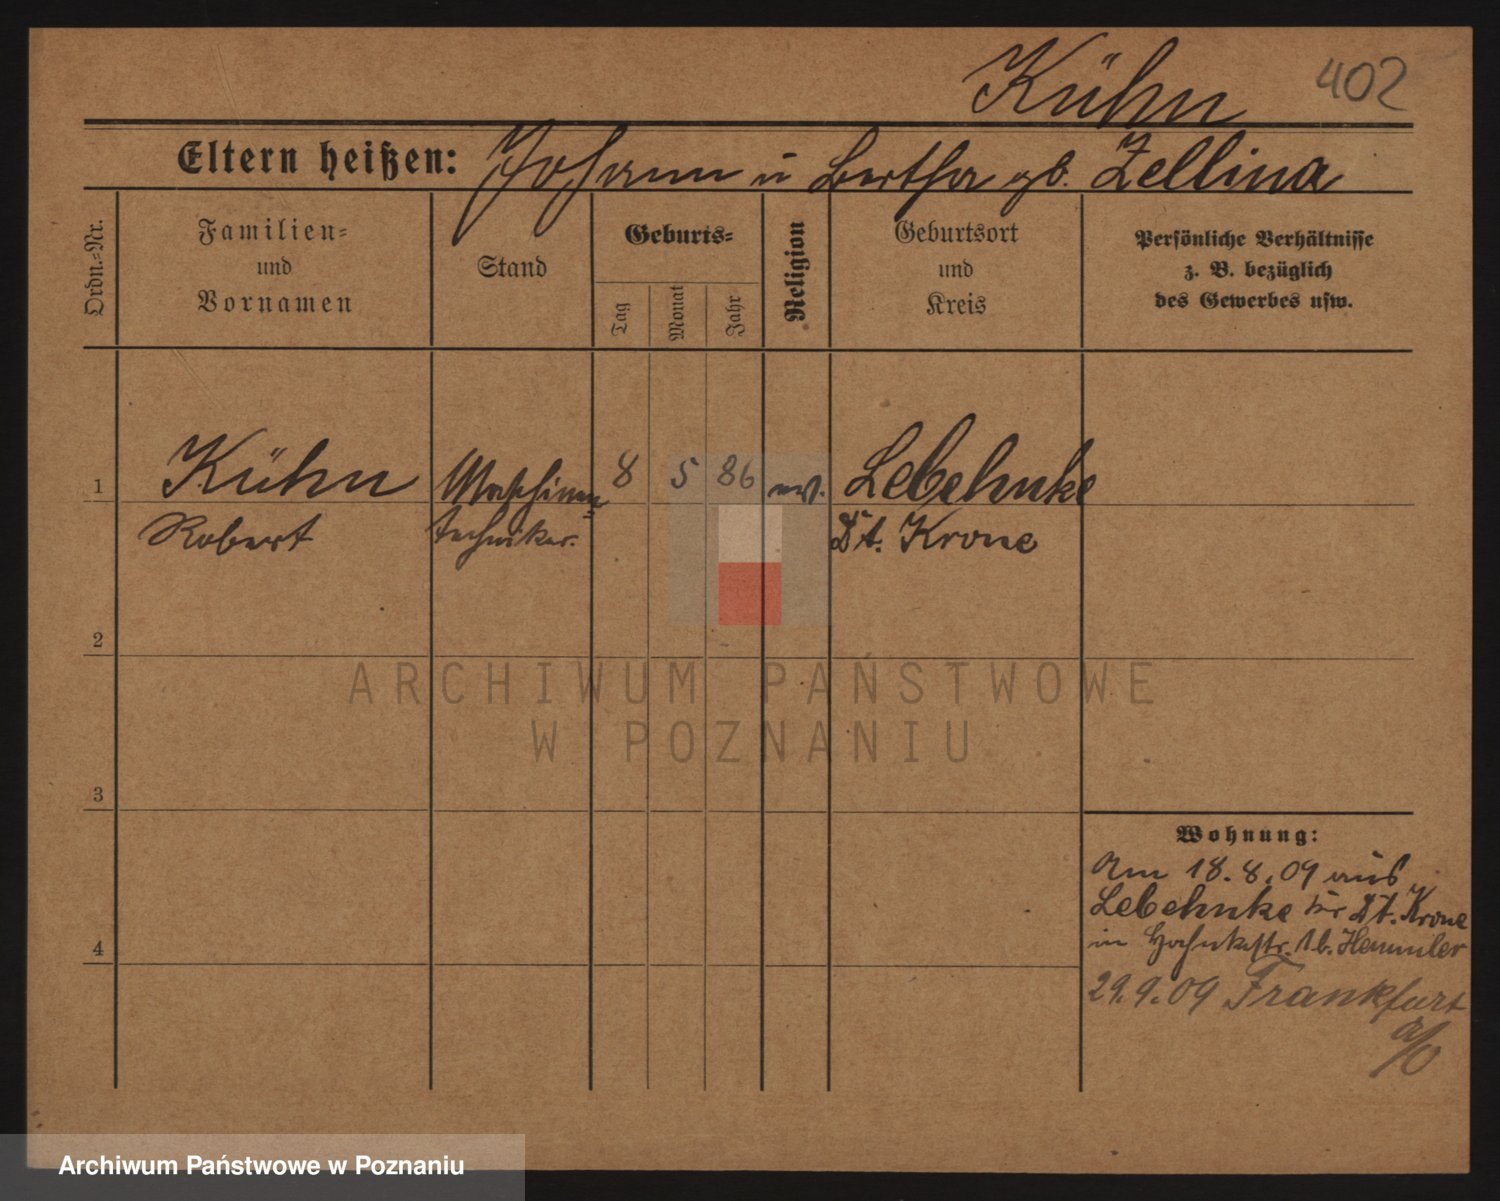 Kühn 402
Eltern heißen: Johann u Bertha gb. Zellina
Ordn.=Nr.
Familien=
und
Vornamen
Stand
Geburts=
Tag
Monat
Jahr
Religion
Geburtsort
und
Kreis
Persönliche Verhältnisse
z. B. bezüglich
des Gewerbes usw.
1 Kühn Maschinen= 8 5 86 ev. Lebehnke
Robert techniker. Dt. Krone
2
3
4
Wohnung:
Am 18.8.09 aus
Lebehnke Kr Dt. Krone
in 1 b. Hemmler
29.9.09 Frankfurt
a/O
ARCHIWUM PAŃSTWOWE
W POZNANIU
Archiwum Państwowe w Poznaniu